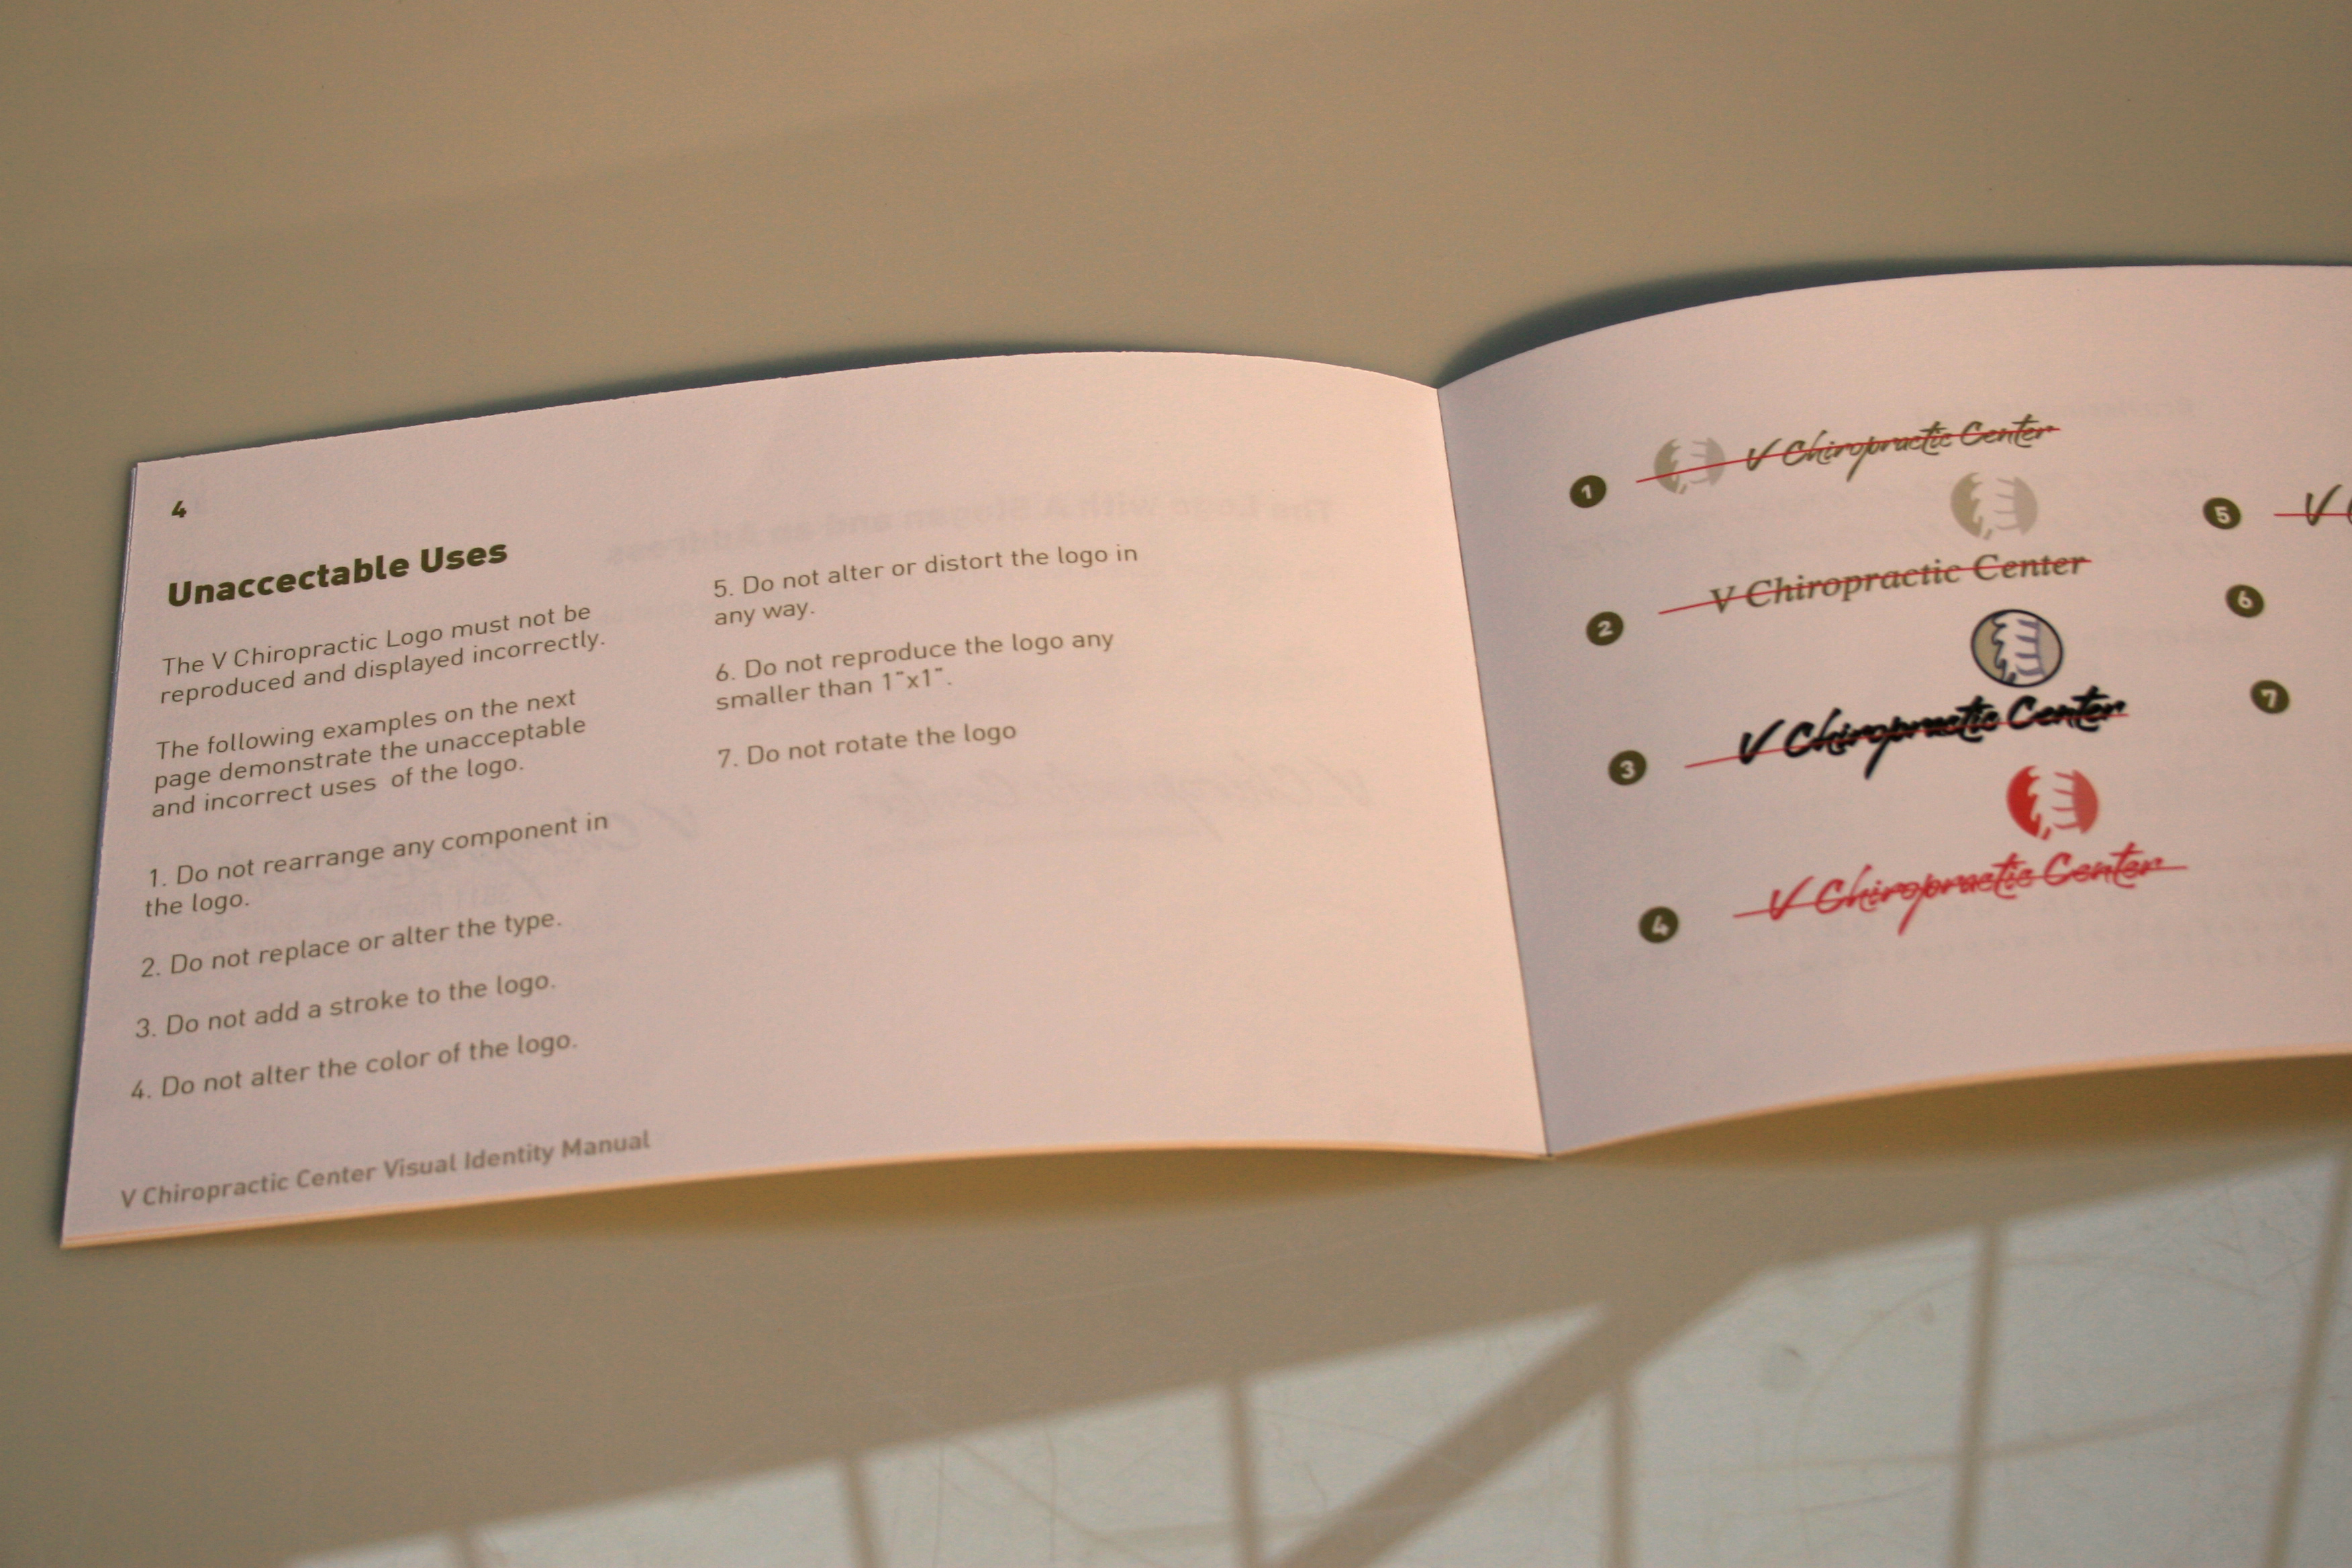 4
Unaccectable Uses
The V Chiropractic Logo must not be
reproduced and displayed incorrectly.
The following examples on the next
page demonstrate the unacceptable
and incorrect uses of the logo.
1. Do not rearrange any component in
the logo.
2. Do not replace or alter the type.
3. Do not add a stroke to the logo.
4. Do not alter the color of the logo.
5. Do not alter or distort the logo in
any way.
6. Do not reproduce the logo any
smaller than 1"x1".
7. Do not rotate the logo
V Chiropractic Center Visual Identity Manual
1 V Chiropractic Center
2 V Chiropractic Center
3 V Chiropractic Center
4 V Chiropractic Center
5 V
6
7